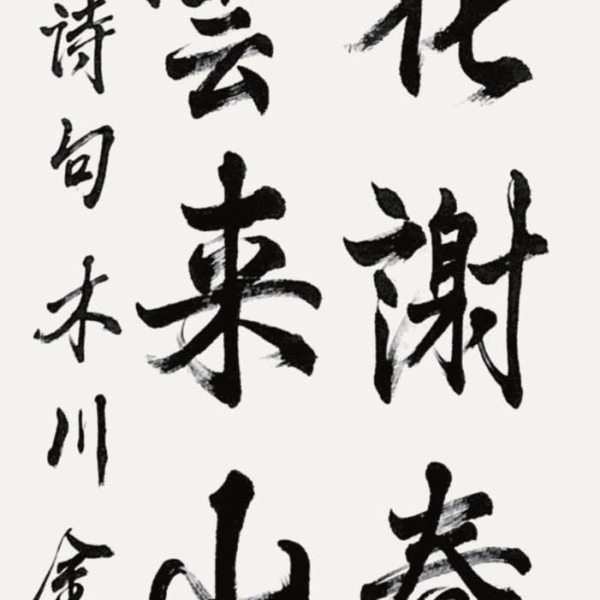 花謝春
雲来山
詩句木川